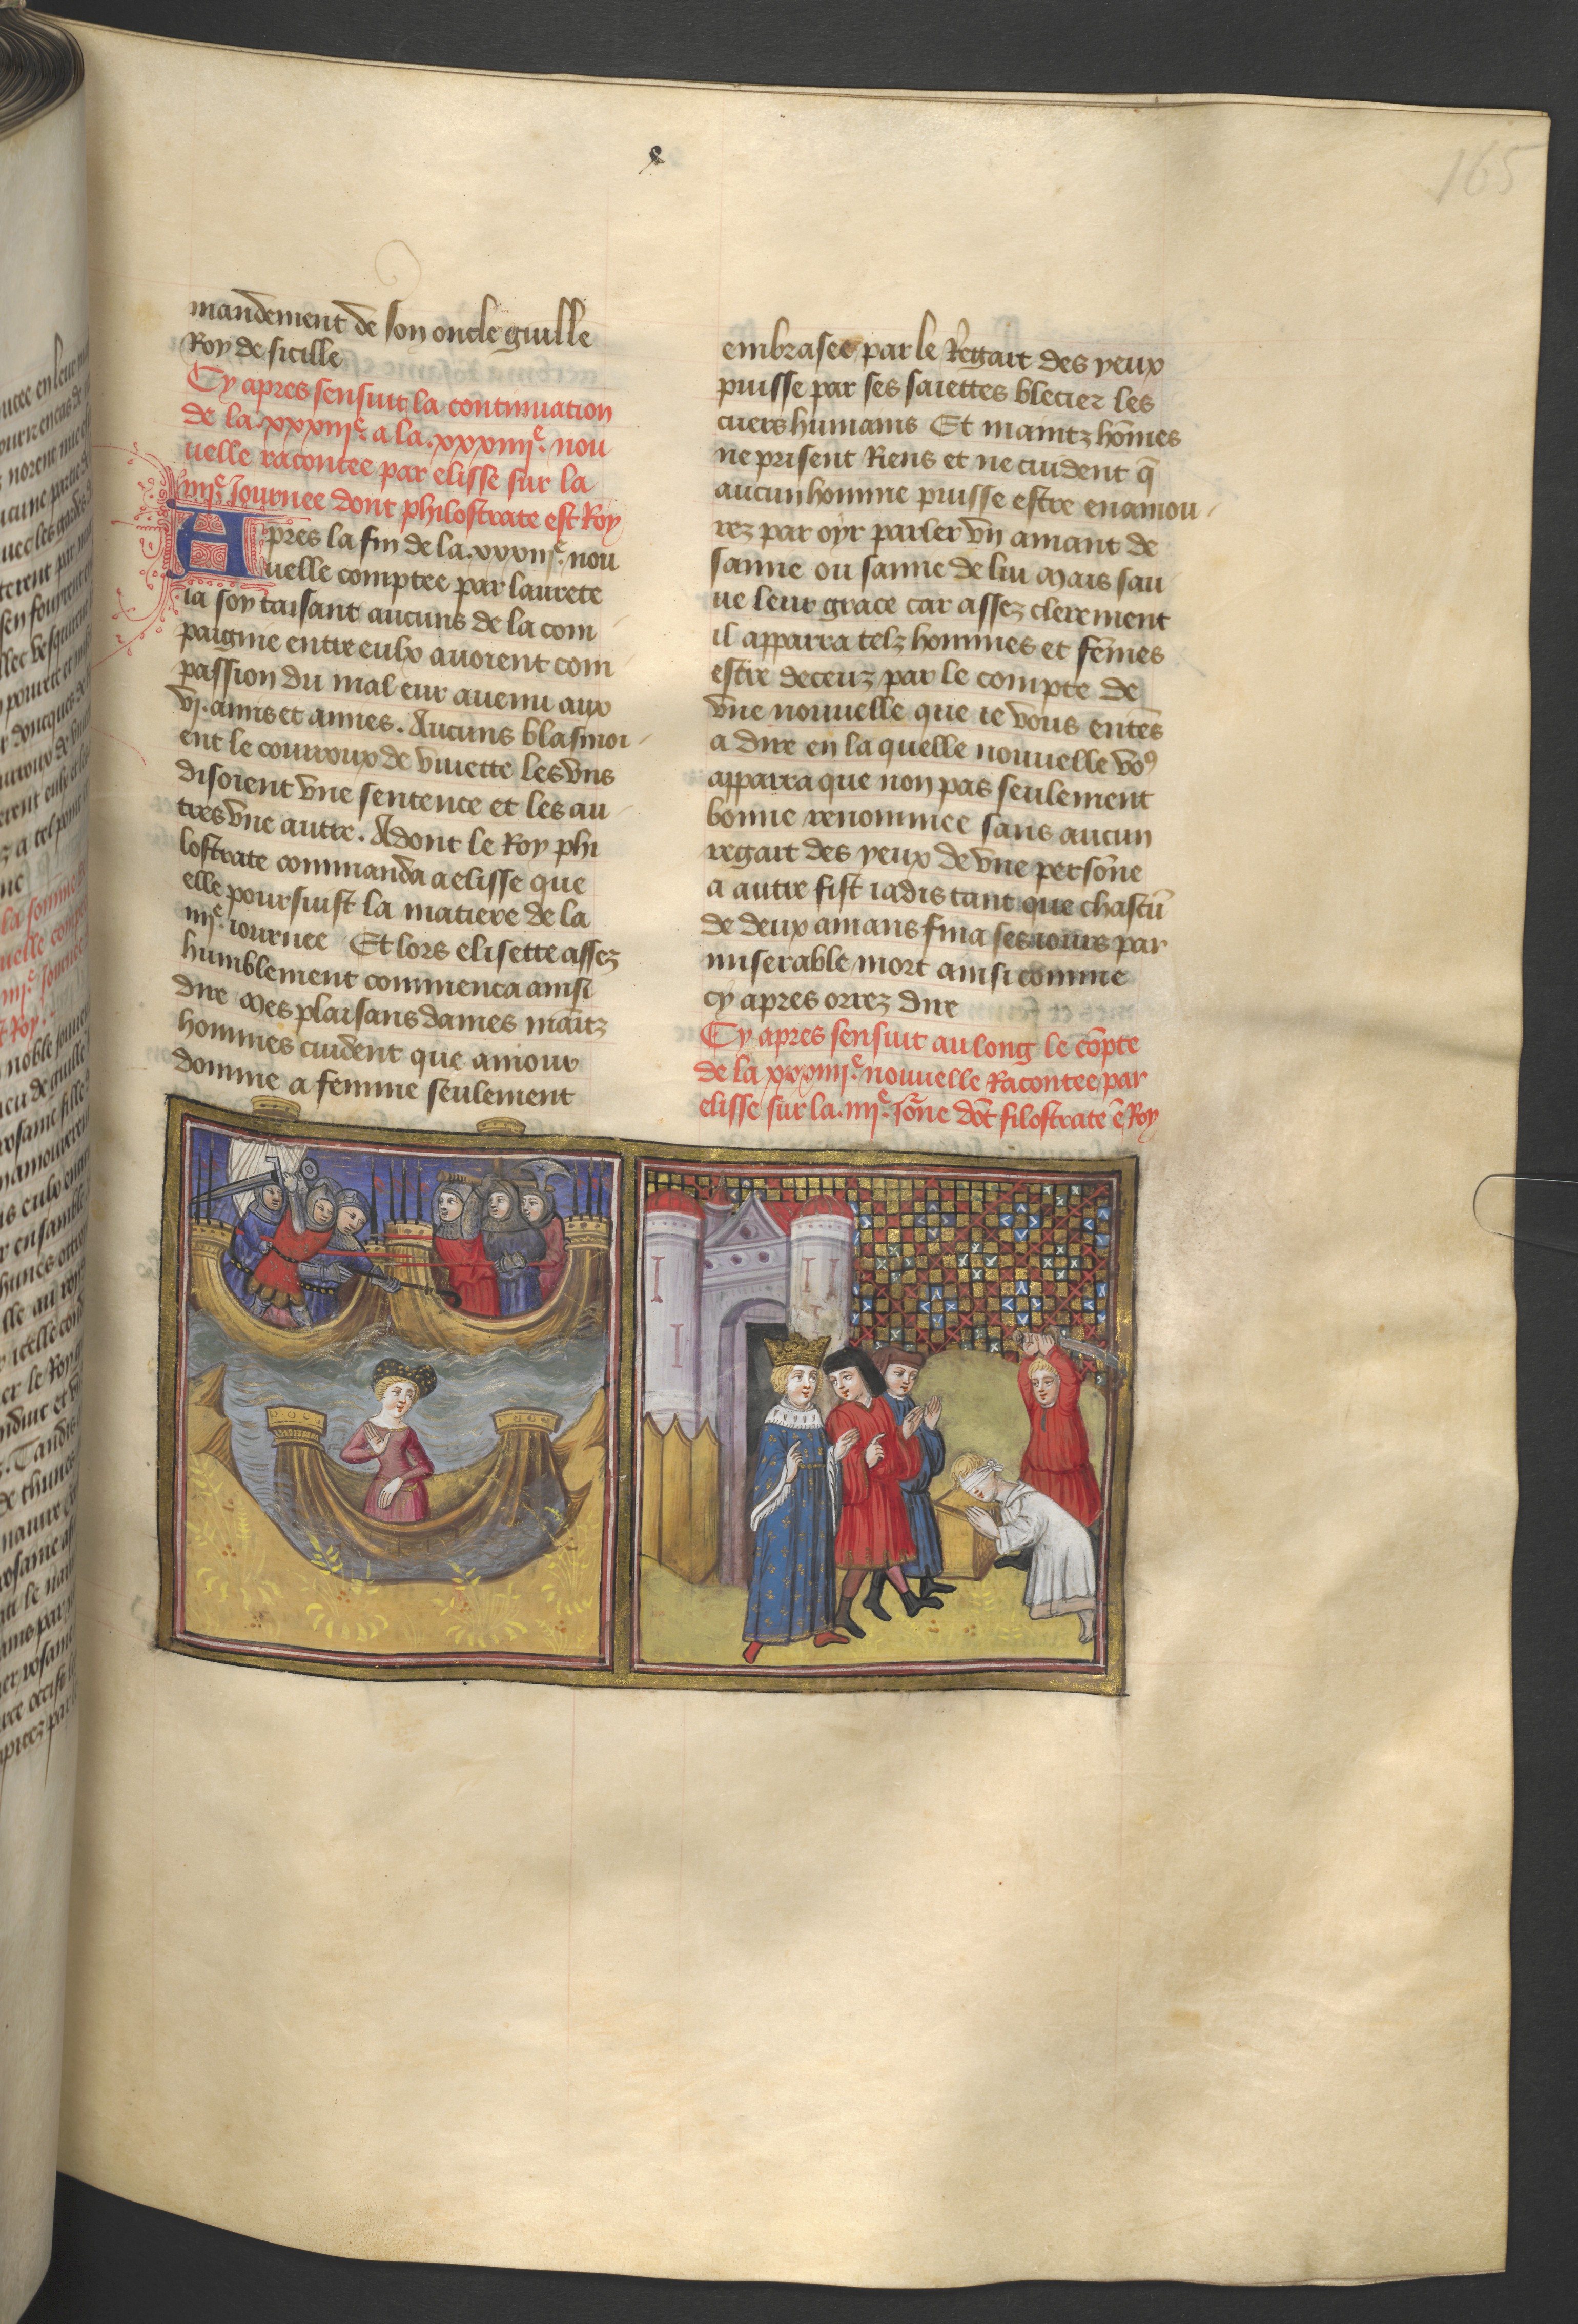 165
mandement de son oncle guille
Roy de sicille
Cy apres sensuit la continuation
de la .xxxiiie. a la .xxxiiiie. nou
uelle racontee par elisse sur la
iiiie. Journee dont philostrate est Roy
Apres la fin de la .xxxiiie. nou
uelle comptee par laurete
ia soy taisant aucuns de la com
paignie entre eulx auoient com
passion du mal eur auenu aux
vj. amis et amies. Aucuns blasmoi
ent le courroux de viuette les vns
disoient vne sentence et les au
tres vne autre. Adont le Roy phi
lostrate commanda a elisse que
elle poursuist la matiere de la
iiiie. iournee Et lors elisette assez
humblement commenca ainsi
dire Mes plaisans dames maītz
hommes cuident que amour
domme a femme seulement
embrasee par le Regart des yeux
puisse par ses saiettes blecier les
cuers humains Et maintz hōmes
ne prisent Riens et ne cuident q̄
aucun homme puisse estre enamou
rez par oyr parler vn amant de
sanne ou sanne de lui Mais sau
ue leur grace car assez clerement
il apparra telz hommes et fēmes
estre deceuz par le compte de
vne nouuelle que ie vous entēs
a dire en la quelle nouuelle voꝰ
apparra que non pas seulement
bonne renommee sans aucun
regart des yeux de vne persōne
a autre fist iadis tant que chascū
de deux amans fina ses iours par
miserable mort ainsi comme
cy apres orrez dire
Cy apres sensuit au long le cōpte
de la xxxiiiie. nouuelle Racontee par
elisse sur la .iiiie. Jōne dōt filostrate ē Roy